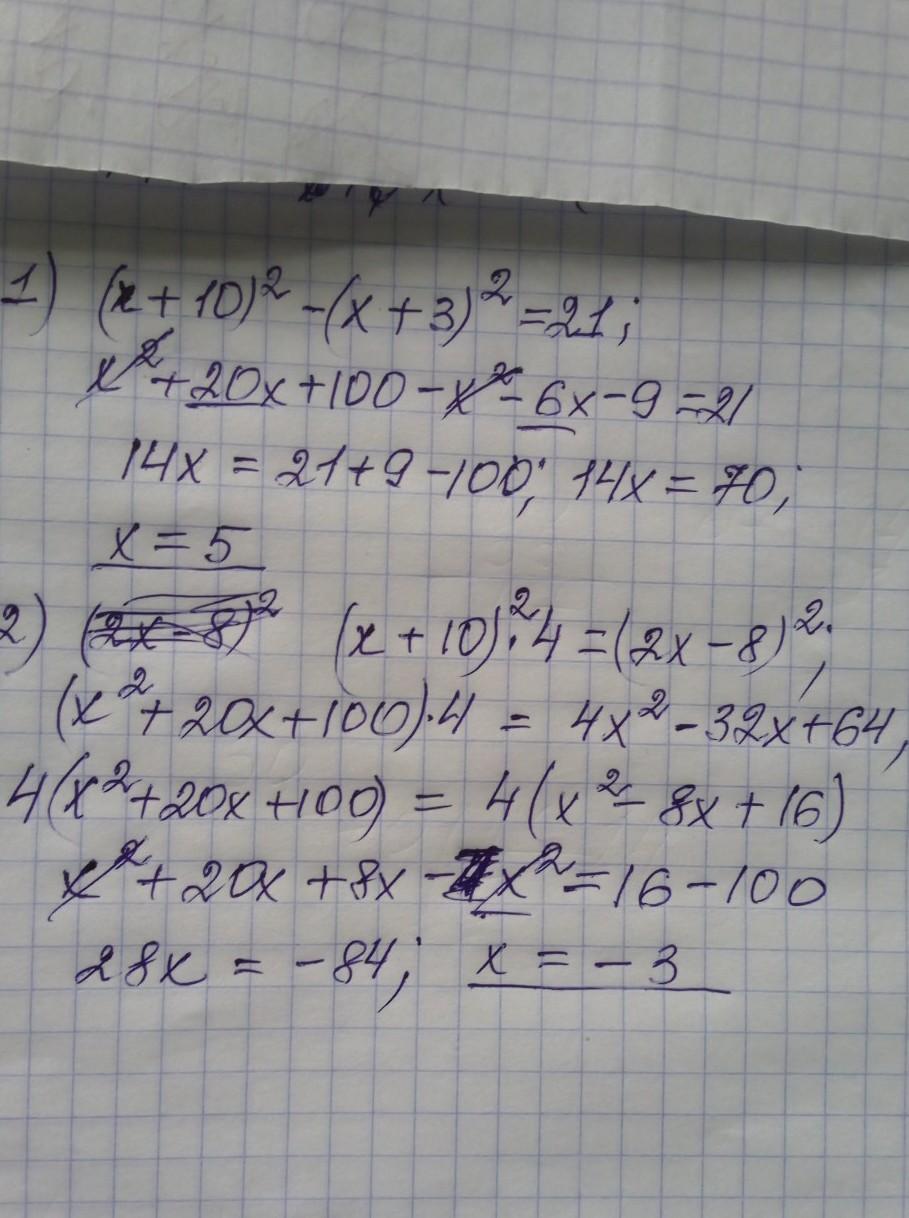 1) (x+10)² -(x+3)² =21;
x² +20x+100 -x² -6x-9 =21
14x = 21+9-100; 14x = 70;
x = 5
2) (2x-8)² (x+10)²·4 =(2x-8)²;
(x²+20x+100)·4 = 4x²-32x+64,
4(x²+20x+100) = 4(x²-8x+16)
x²+20x+8x-x²=16-100
28x = -84; x = -3